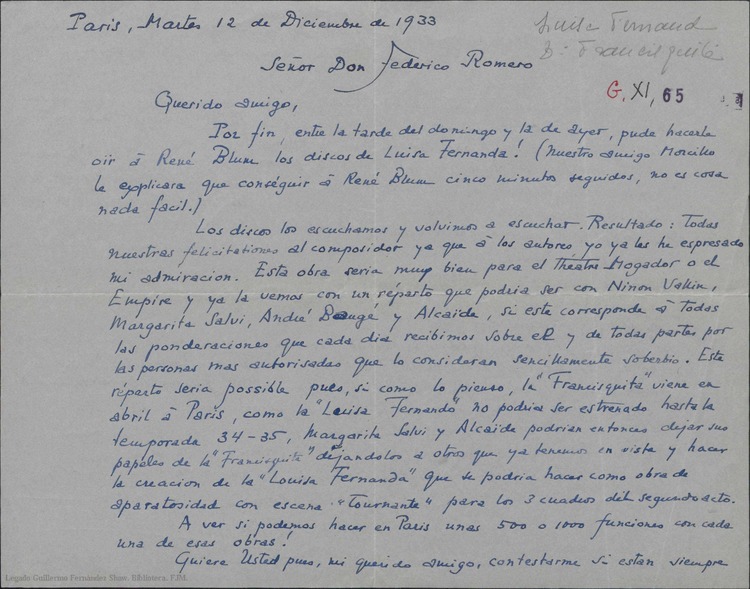 Paris, Martes 12 de Diciembre de 1933
Luisa Fernanda
Da Francisquita
Señor Don Federico Romero
G. XI, 65
Querido amigo,
Por fin, entre la tarde del domingo y la de ayer, pude hacerle
oir à René Blum los discos de Luisa Fernanda! (Nuestro amigo Morcillo
le explicara que conseguir à René Blum cinco minutos seguidos, no es cosa
nada facil.)
Los discos los escuchamos y volvimos a escuchar. Resultado: Todas
nuestras felicitationes al compositor ya que à los autores yo ya les he expresado
mi admiracion. Esta obra seria muy bien para el Theatre Mogador o el
Empire y ya la vemos con un réparto que podria ser con Ninon Vallin,
Margarita Salvi, André Baugé y Alcaïde, si este corresponde à todas
las ponderaciones que cada dia recibimos sobre el y de todas partes por
las personas mas autorisadas que lo consideran sencillamente soberbio. Este
réparto seria possible pues, si como lo pienso, la "Francisquita" viene en
abril à Paris, como la "Louisa Fernanda" no podria ser estrenado hasta la
temporada 34-35, Margarita Salvi y Alcaïde podrian entonces dejar sus
papeles de la "Francisquita" dejandolos a otros que ya tenemos en vista y hacer
la creacion de la "Louisa Fernanda" que se podria hacer como obra de
aparatosidad con escena "Tournante" para los 3 cuadros del segundo acto.
A ver si podemos hacer en Paris unas 500 o 1000 funciones con cada
una de esas obras!
Quiere Usted pues, mi querido amigo, contestarme si estan siempre
Legado Guillermo Fernández Shaw. Biblioteca. FJM.